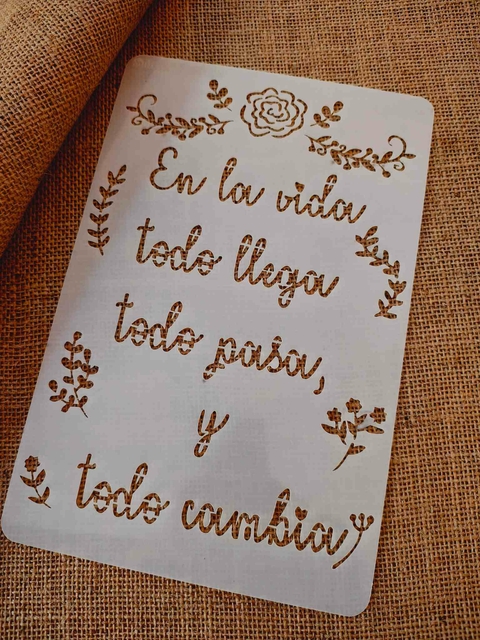 En la vida
todo llega
todo pasa,
y
todo cambia